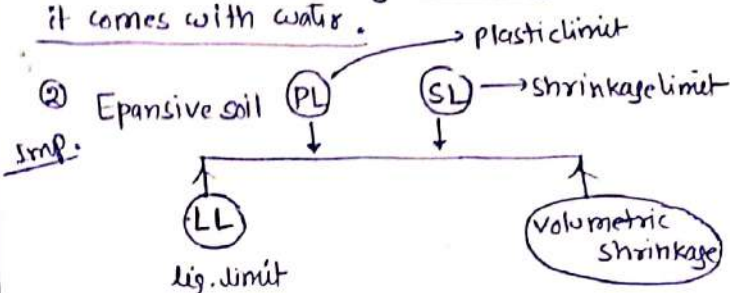 it comes with water.
→ plasticlimit
② Epansive soil PL SL → shrinkagelimit
Imp.
LL
volumetric shrinkage
liq. limit